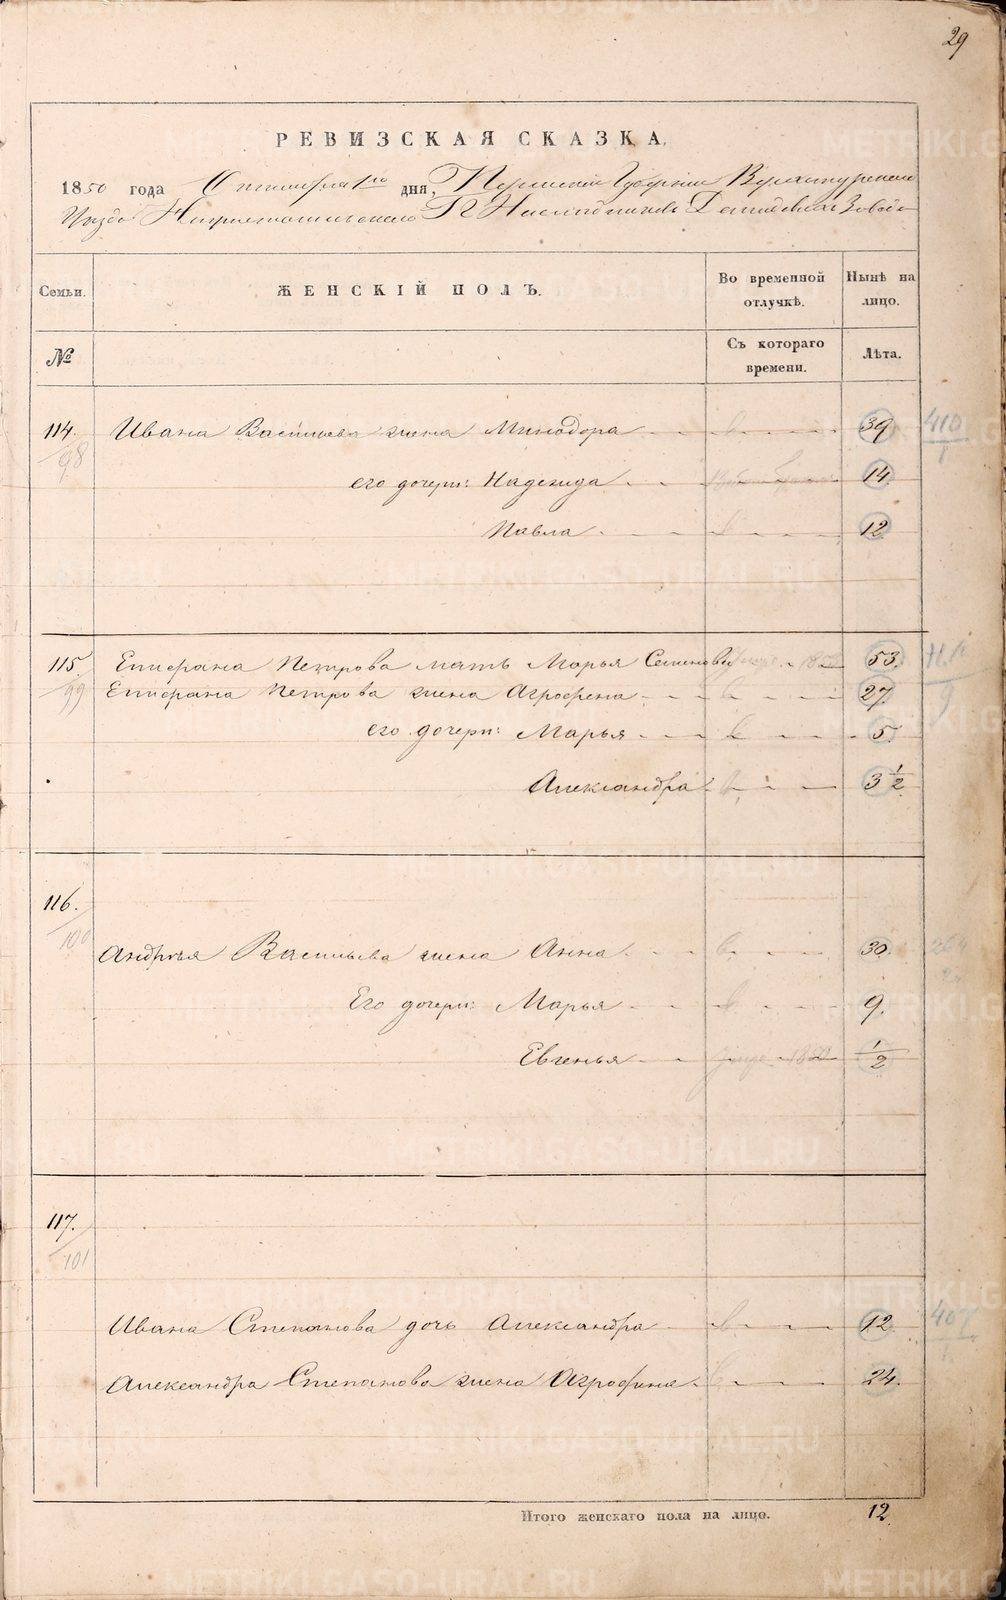 29
РЕВИЗСКАЯ СКАЗКА.
1850 года Октября 1го дня, Пермской Губернии Верхотурского
Уѣзда Нижнетагильского Гг Наслѣдниковъ Демидовыхъ Завода
Семьи. ЖЕНСКІЙ ПОЛЪ. Во временной отлучкѣ. Нынѣ на лицо.
№ Съ котораго времени. Лѣта.
114. Ивана Васильева жена Минодора 39 410/1
98
его дочери: Надежда 14
Павла 12
115 Епифана Петрова мать Марья Семенова 53. Н.П
99 Епифана Петрова жена Агрофена 27. 9
его дочери: Марья 5.
Александра 3 1/2
116.
100 Андрея Васильева жена Анна 30.
Его дочери: Марья 9.
Евгенья 1850 1/2
117.
101
Ивана Степанова дочь Александра 12 407
Александра Степанова жена Агрофина 24.
Итого женскаго пола на лицо. 12
METRIKI.GASO-URAL.RU